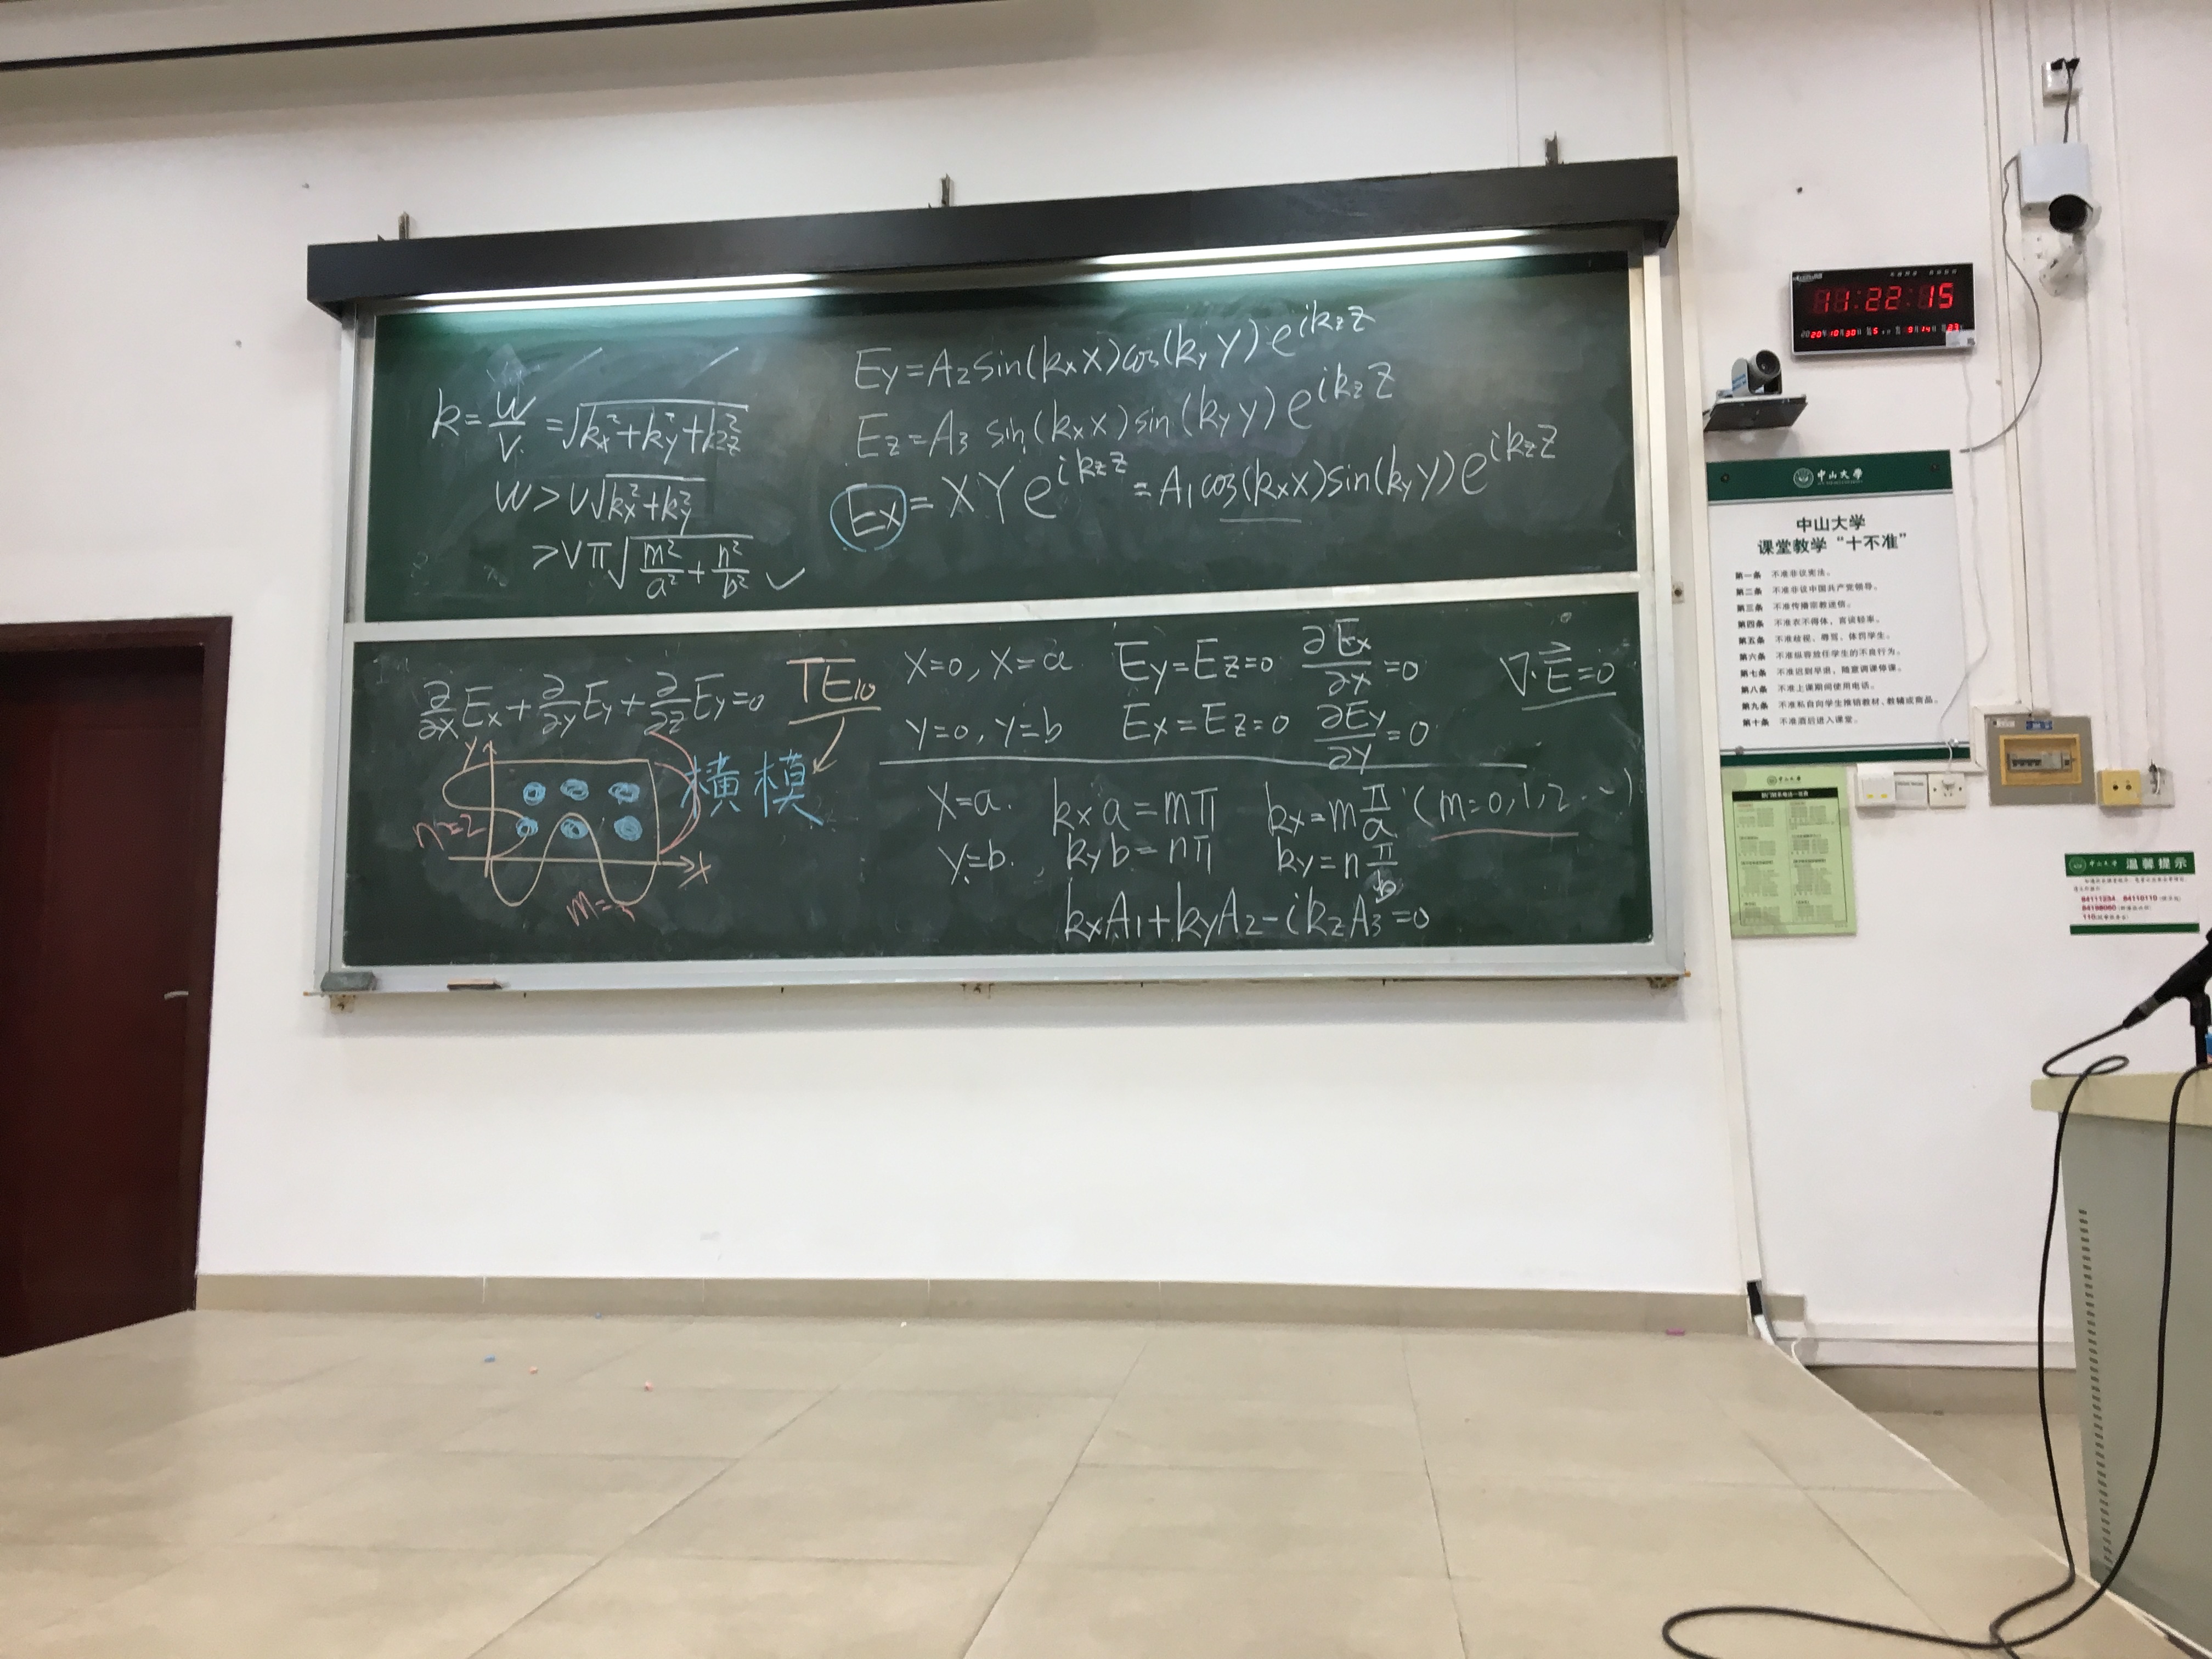 k = w/v = √(kx² + ky² + kz²)
w > v√(kx² + ky²)
> vπ√(m²/a² + n²/b²) ✓
Ey = A2 sin(kxx) cos(kyy) e^{ikzz}
Ez = A3 sin(kxx) sin(kyy) e^{ikzz}
Ex = XYe^{ikzz} = A1 cos(kxx) sin(kyy) e^{ikzz}
∂/∂x Ex + ∂/∂y Ey + ∂/∂z Ey = 0
TE10
横模
y
n=2
x
X=0, X=a Ey=Ez=0 ∂Ex/∂x=0
∇·E⃗=0
y=0, y=b Ex=Ez=0 ∂Ey/∂y=0
X=a. kxa=mπ kx=m π/a (m=0,1,2…)
y=b. kyb=nπ ky=n π/b
kxA1+kyA2-ikzA3=0
11:22:15
中山大学
中山大学
课堂教学“十不准”
第一条 不准非议宪法。
第二条 不准非议中国共产党领导。
第三条 不准传播宗教迷信。
第四条 不准衣不得体，言谈轻率。
第五条 不准歧视、辱骂、体罚学生。
第六条 不准纵容放任学生的不良行为。
第七条 不准迟到早退，随意调课停课。
第八条 不准上课期间使用电话。
第九条 不准私自向学生推销教材、教辅或商品。
第十条 不准酒后进入课堂。
中山大学 温馨提示
84111234 84110110
110